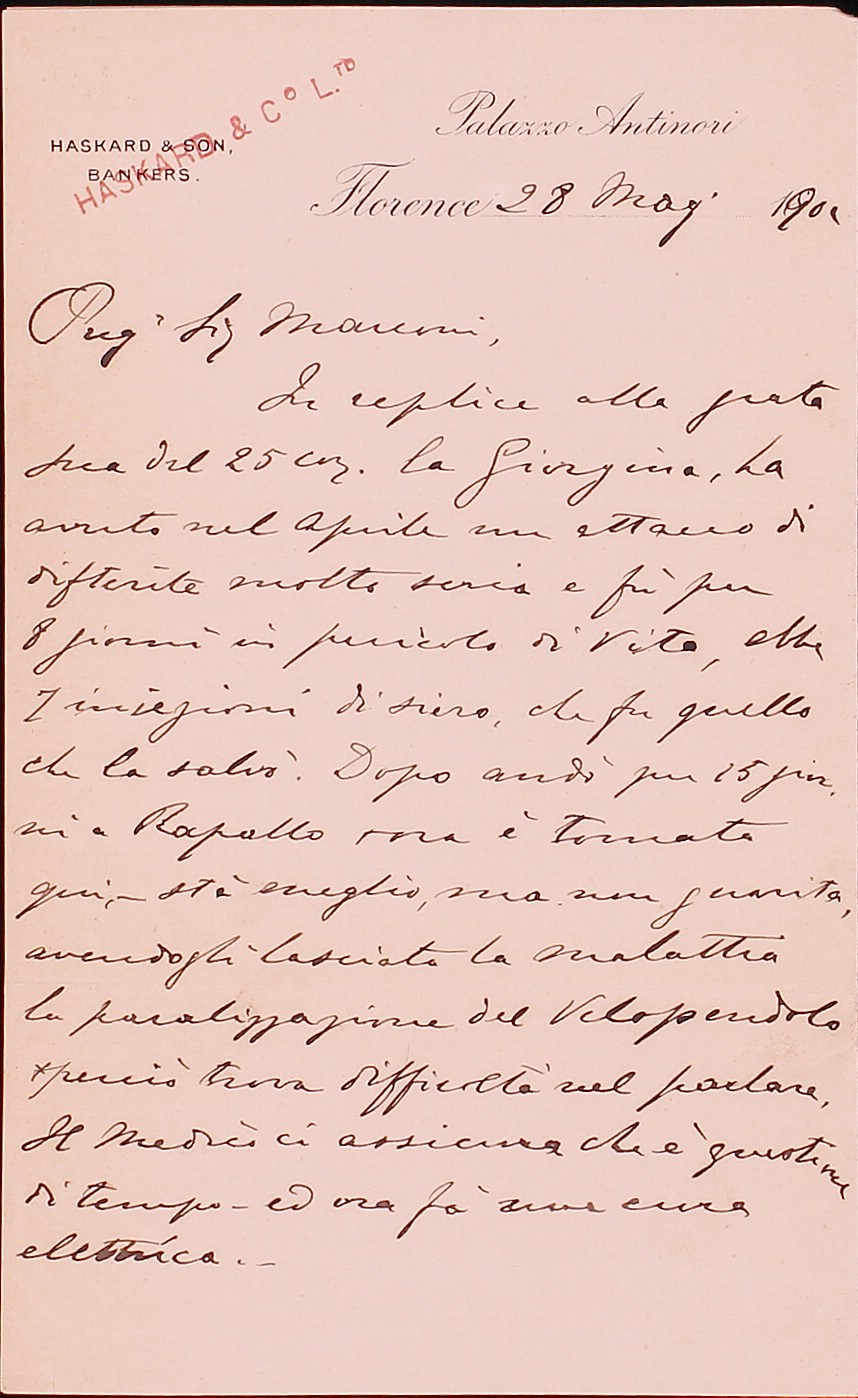 HASKARD & Cº L.TD
HASKARD & SON,
BANKERS.
Palazzo Antinori
Florence 28 Mag 190
Preg° Sig Marconi,
In replica alla grata
sua del 25 cor. la Giorgina, ha
avuto nel Aprile un attacco di
difterite molto seria e fù per
8 giorni in pericolo di Vita, ebbe
7 iniezioni di siero, che fu quello
che la salvò. Dopo andò per 15 gior.
ni a Rapallo ora è tornata
qui, - stà meglio, ma non guarita,
avendogli lasciata la malattia
la paralizzazione del Velopendolo
perciò trova difficoltà nel parlare,
Il Medico ci assicura che è questione
di tempo - ed ora fà una cura
elettrica. -